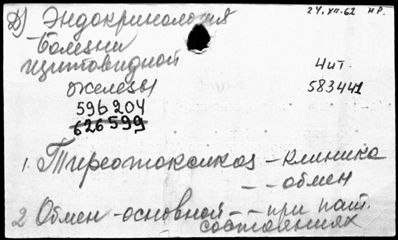 Д) Эндокринология
24.VII-62 нр.
Болезни
щитовидной
чит.
железы
583441
596204
626599
1. Тиреотоксикоз - клиника
-- обмен
2 Обмен - основной -- при пат.
состояниях